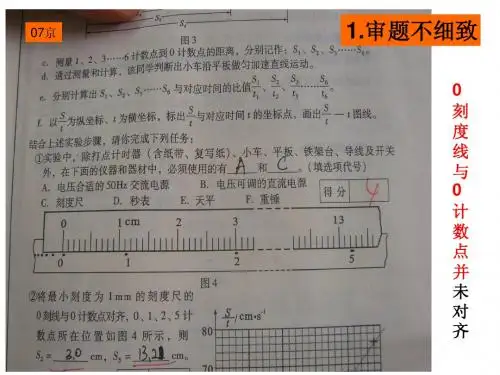 07京
1.审题不细致
S₆
图3
c. 测量1、2、3……6计数点到0计数点的距离，分别记作：S₁、S₂、S₃……S₆。
d. 通过测量和计算，该同学判断出小车沿平板做匀加速直线运动。
e. 分别计算出S₁、S₂、S₃……S₆与对应时间的比值 S₁/t₁、S₂/t₂、S₃/t₃……S₆/t₆。
f. 以S/t为纵坐标、t为横坐标，标出S/t与对应时间t的坐标点，画出S/t—t图线。
结合上述实验步骤，请你完成下列任务：
①实验中，除打点计时器（含纸带、复写纸）、小车、平板、铁架台、导线及开关
外，在下面的仪器和器材中，必须使用的有 A 和 C 。（填选项代号）
A. 电压合适的50Hz交流电源 B. 电压可调的直流电源
C. 刻度尺 D. 秒表 E. 天平 F. 重锤
得分 4
0 1cm 2 3 13
0 1 2 5
图4
②将最小刻度为1mm的刻度尺的
0刻线与0计数点对齐，0、1、2、5计
数点所在位置如图4所示，则
S₂= 3.0 cm，S₅= 13.20 cm。
S/t /cm·s⁻¹
80
70
0刻度线与0计数点并未对齐